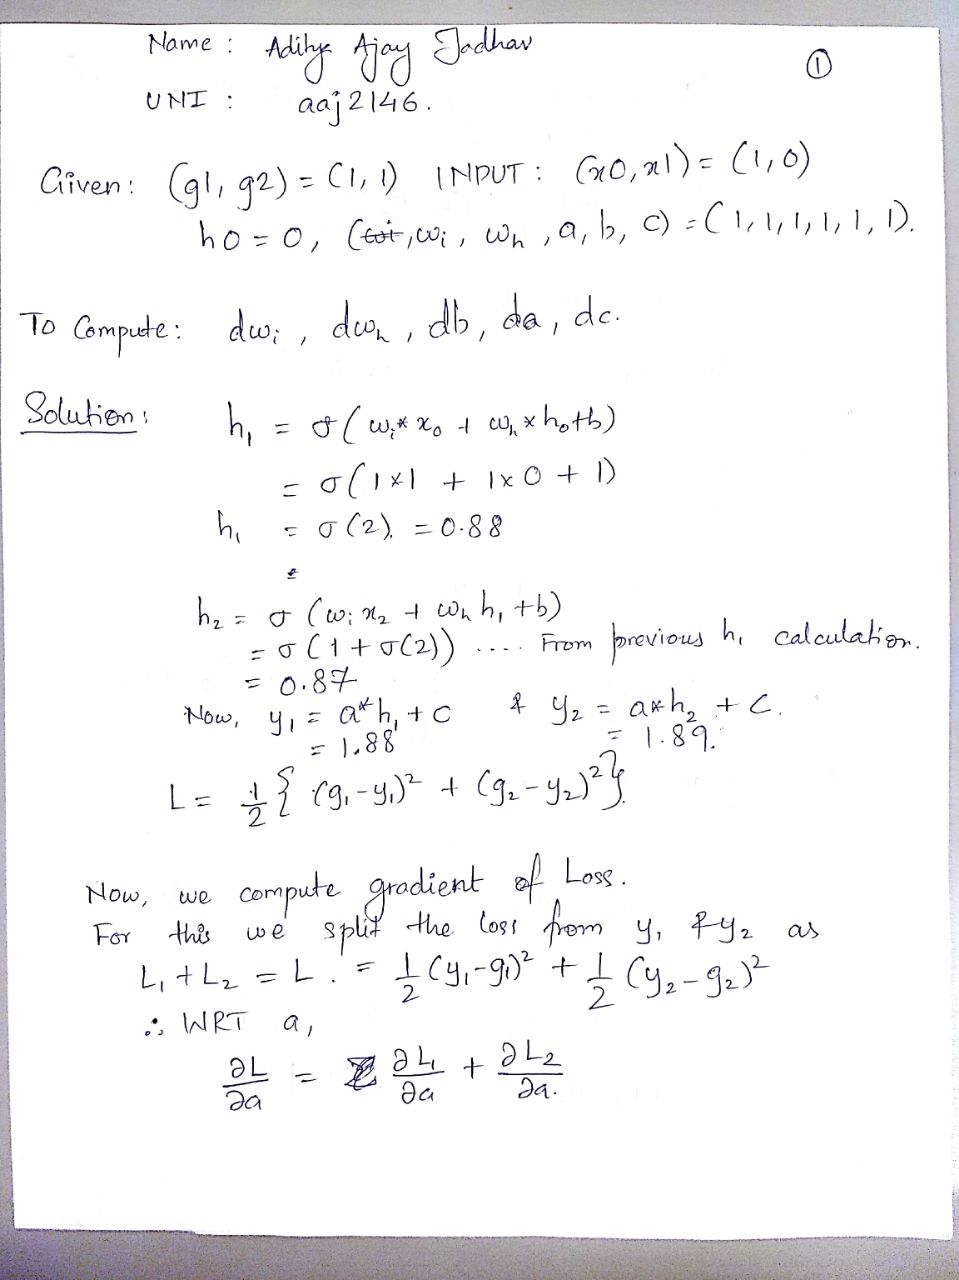 Name : Aditya Ajay Jadhav
①
UNI : aaj2146.
Given: (g1, g2) = (1, 1) INPUT : (x0, x1) = (1, 0)
h0 = 0, (wi, wh, a, b, c) = (1, 1, 1, 1, 1, 1).
To Compute: dwi, dwh, db, da, dc.
Solution:
h₁ = σ(wᵢ* x₀ + wₕ × h₀+b)
= σ(1×1 + 1×0 + 1)
h₁ = σ(2). = 0.88
h₂ = σ (wᵢ x₂ + wₕ h₁ +b)
= σ(1 + σ(2)) .... From previous h₁ calculation.
= 0.87
Now, y₁ = a*h₁ + c & y₂ = a*h₂ + c.
= 1.88 = 1.89.
L = 1/2 { (g₁-y₁)² + (g₂-y₂)² }.
Now, we compute gradient of Loss.
For this we split the loss from y₁ & y₂ as
L₁ + L₂ = L. = 1/2 (y₁-g₁)² + 1/2 (y₂-g₂)²
∴ WRT a,
∂L/∂a = ∂L₁/∂a + ∂L₂/∂a.